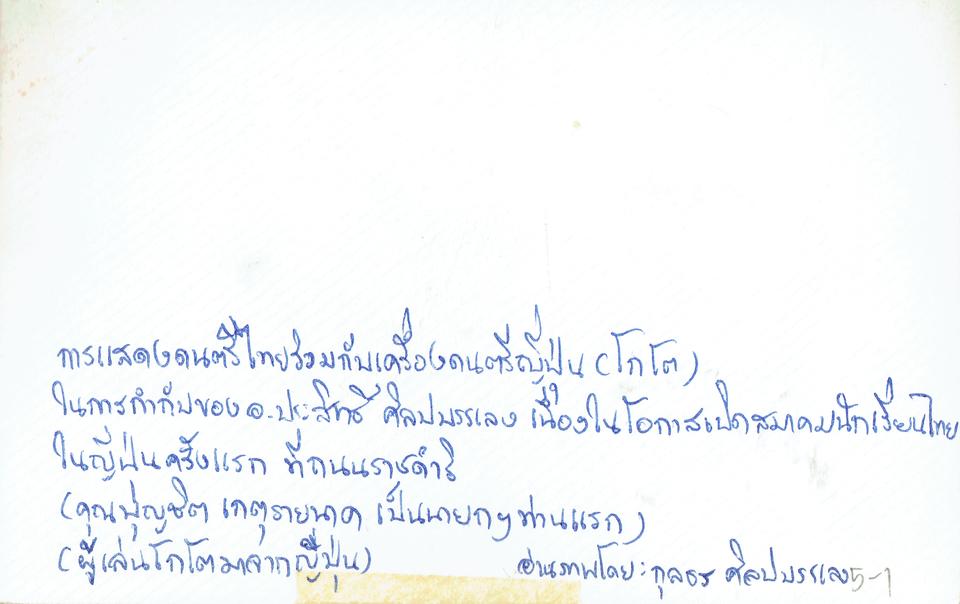 การแสดงดนตรีไทยร่วมกับเครื่องดนตรีญี่ปุ่น (โกโต)
ในการกำกับของ อ.ประสิทธิ์ ศิลปบรรเลง เนื่องในโอกาสเปิดสมาคมนักเรียนไทย
ในญี่ปุ่นครั้งแรก ที่ถนนราชดำริ
(คุณ เกตุรายนาค เป็นนายกฯท่านแรก)
(ผู้เล่นโกโตมาจากญี่ปุ่น)
อ่านภาพโดย: กุลธร ศิลปบรรเลง 5-1